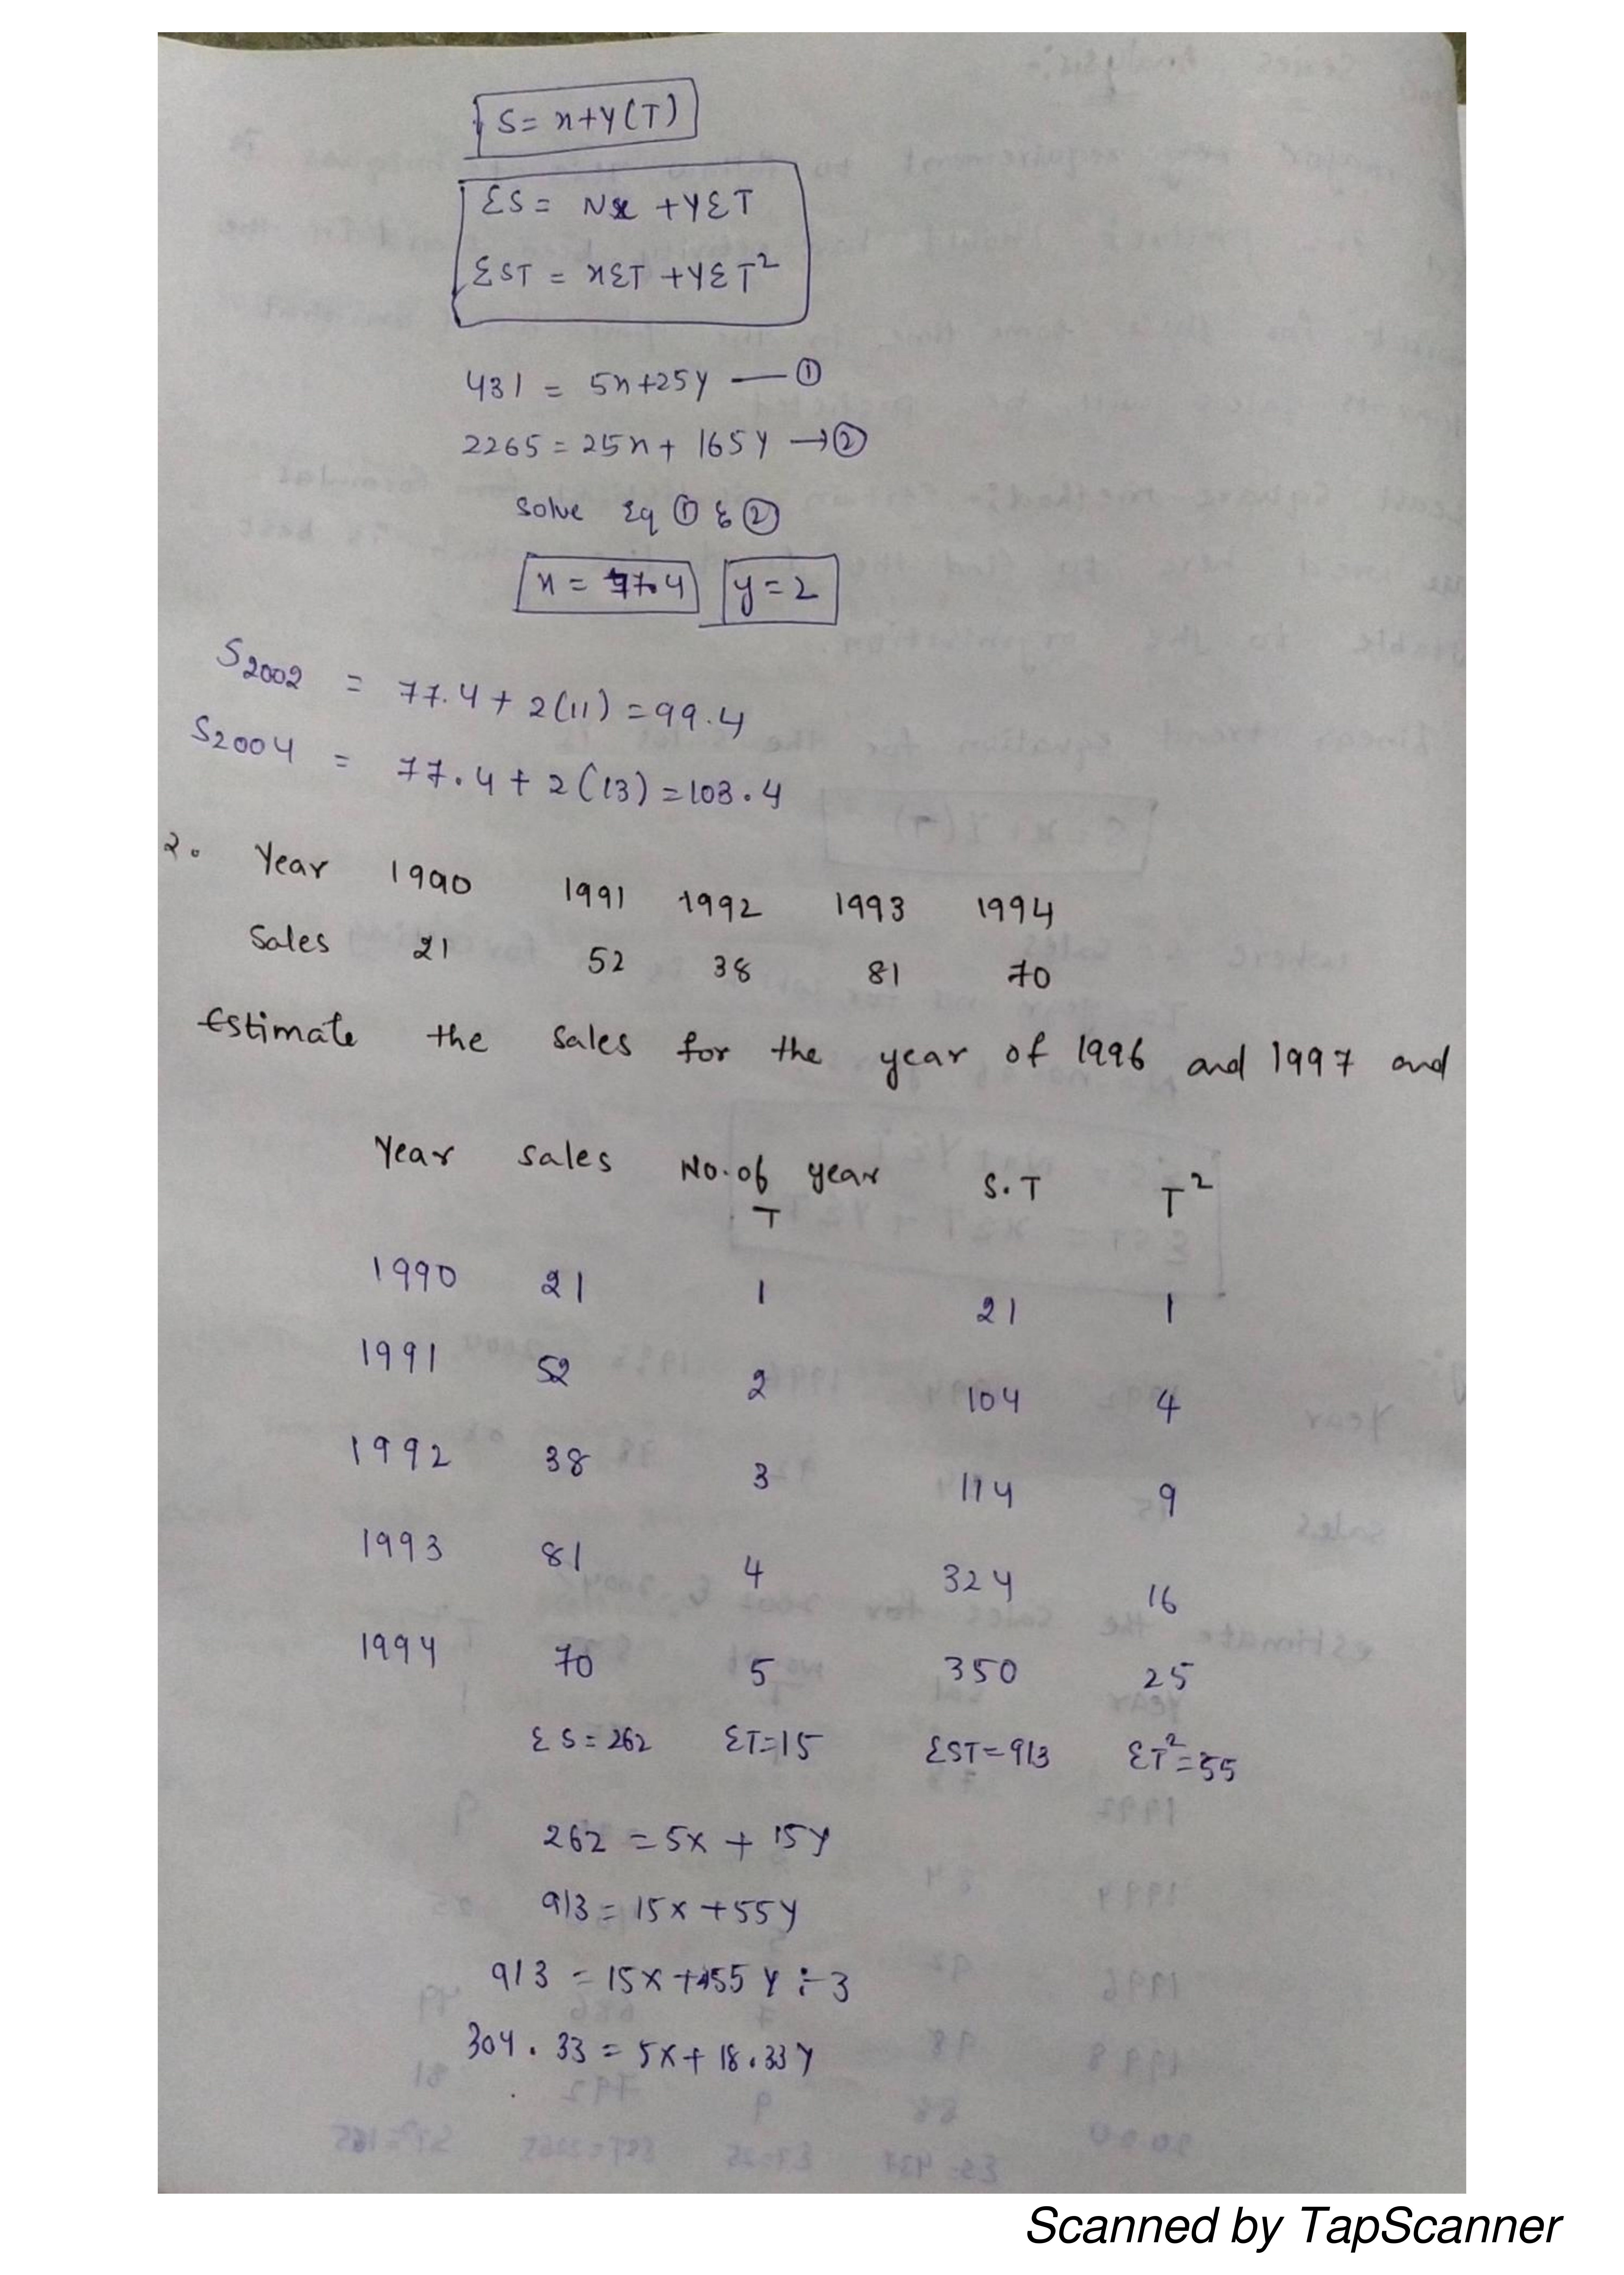 S= x+y(T)
ΣS= Nx +YΣT
ΣST = xΣT +YΣT²
431 = 5x+25y —①
2265 = 25x + 165y →②
Solve Eq ① & ②
x = 77.4 y=2
S2002 = 77.4 + 2(11) = 99.4
S2004 = 77.4 + 2(13) = 103.4
2. Year 1990 1991 1992 1993 1994
Sales 21 52 38 81 70
Estimate the sales for the year of 1996 and 1997 and
Year sales No.of year S.T T²
T
1990 21 1 21 1
1991 52 2 104 4
1992 38 3 114 9
1993 81 4 324 16
1994 70 5 350 25
ΣS=262 ΣT=15 ΣST=913 ΣT²=55
262 = 5x + 15y
913 = 15x +55y
913 = 15x +55y ÷ 3
304.33 = 5x + 18.33y
Scanned by TapScanner